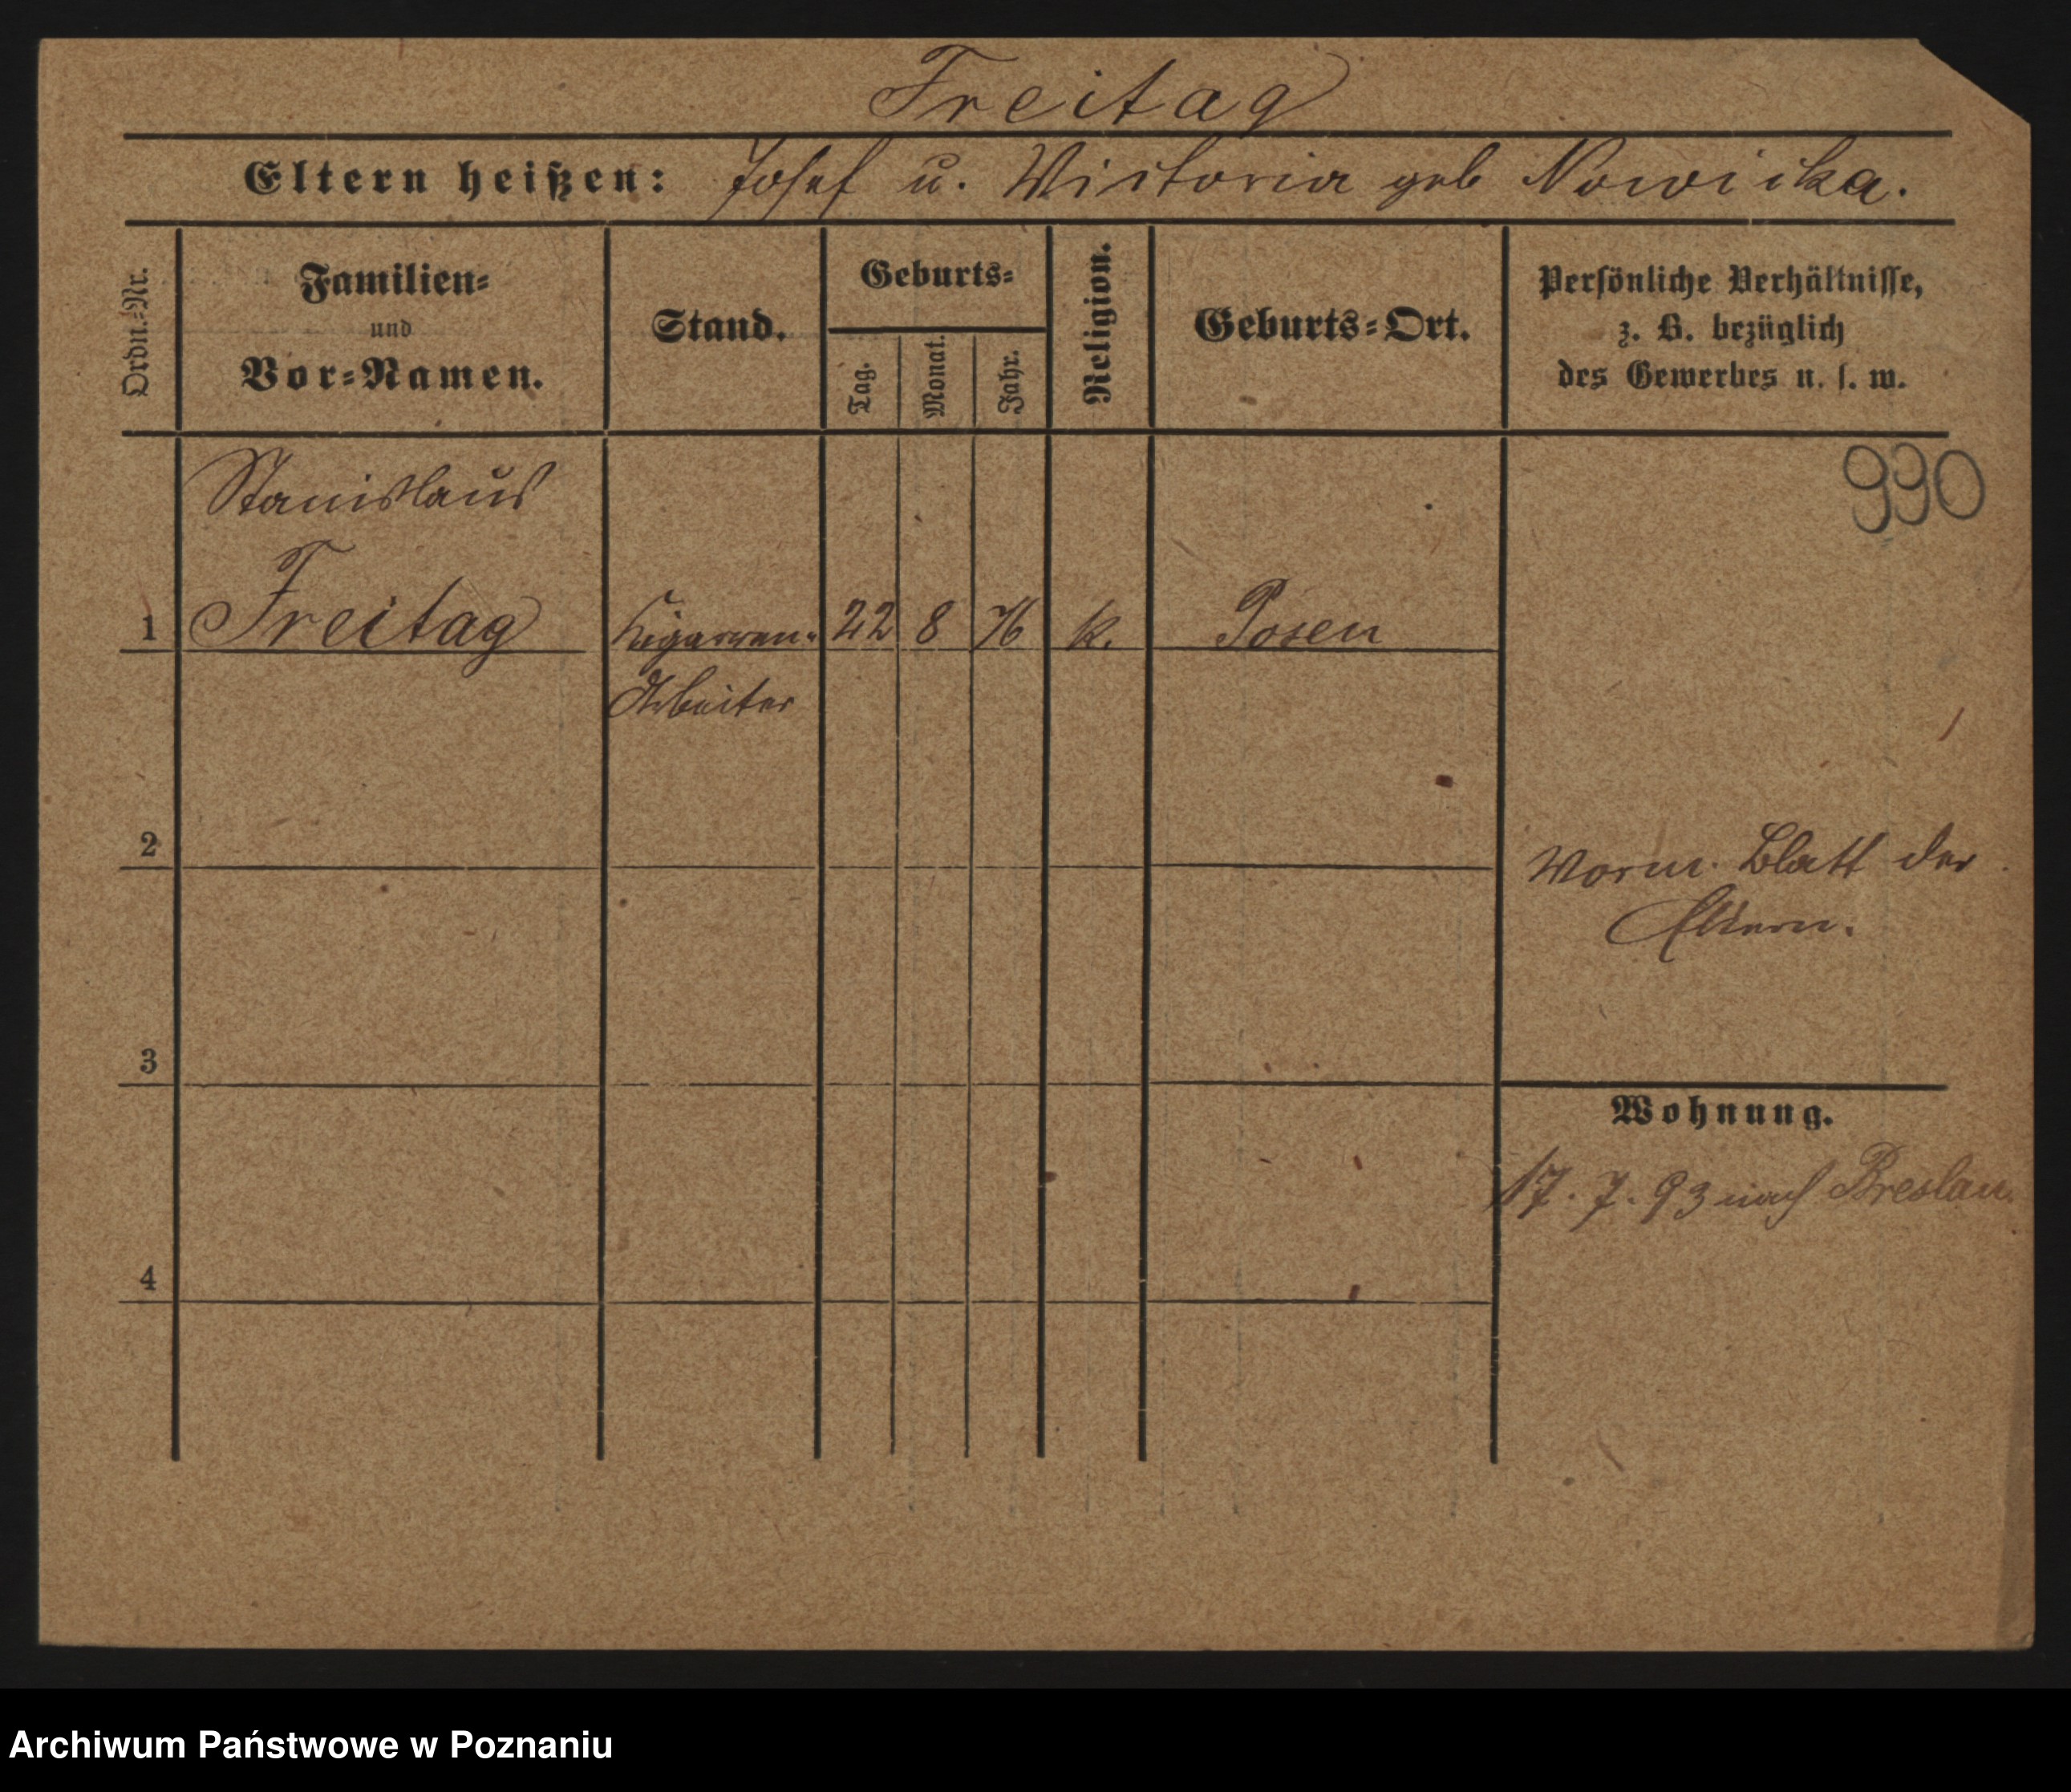 Freitag
Eltern heißen: Josef u. Victoria geb Nowicka.
Ordn.=Nr.
Familien=
und
Vor=Namen.
Stand.
Geburts=
Tag.
Monat.
Jahr.
Religion.
Geburts=Ort.
Persönliche Verhältnisse,
z. B. bezüglich
des Gewerbes u. s. w.
990
Stanislaus
1 Freitag Cigarren= 22 8 76 k. Posen
Arbeiter
2
Vorm. Blatt der
Eltern.
3
Wohnung.
17. 7. 93 nach Breslau.
4
Archiwum Państwowe w Poznaniu